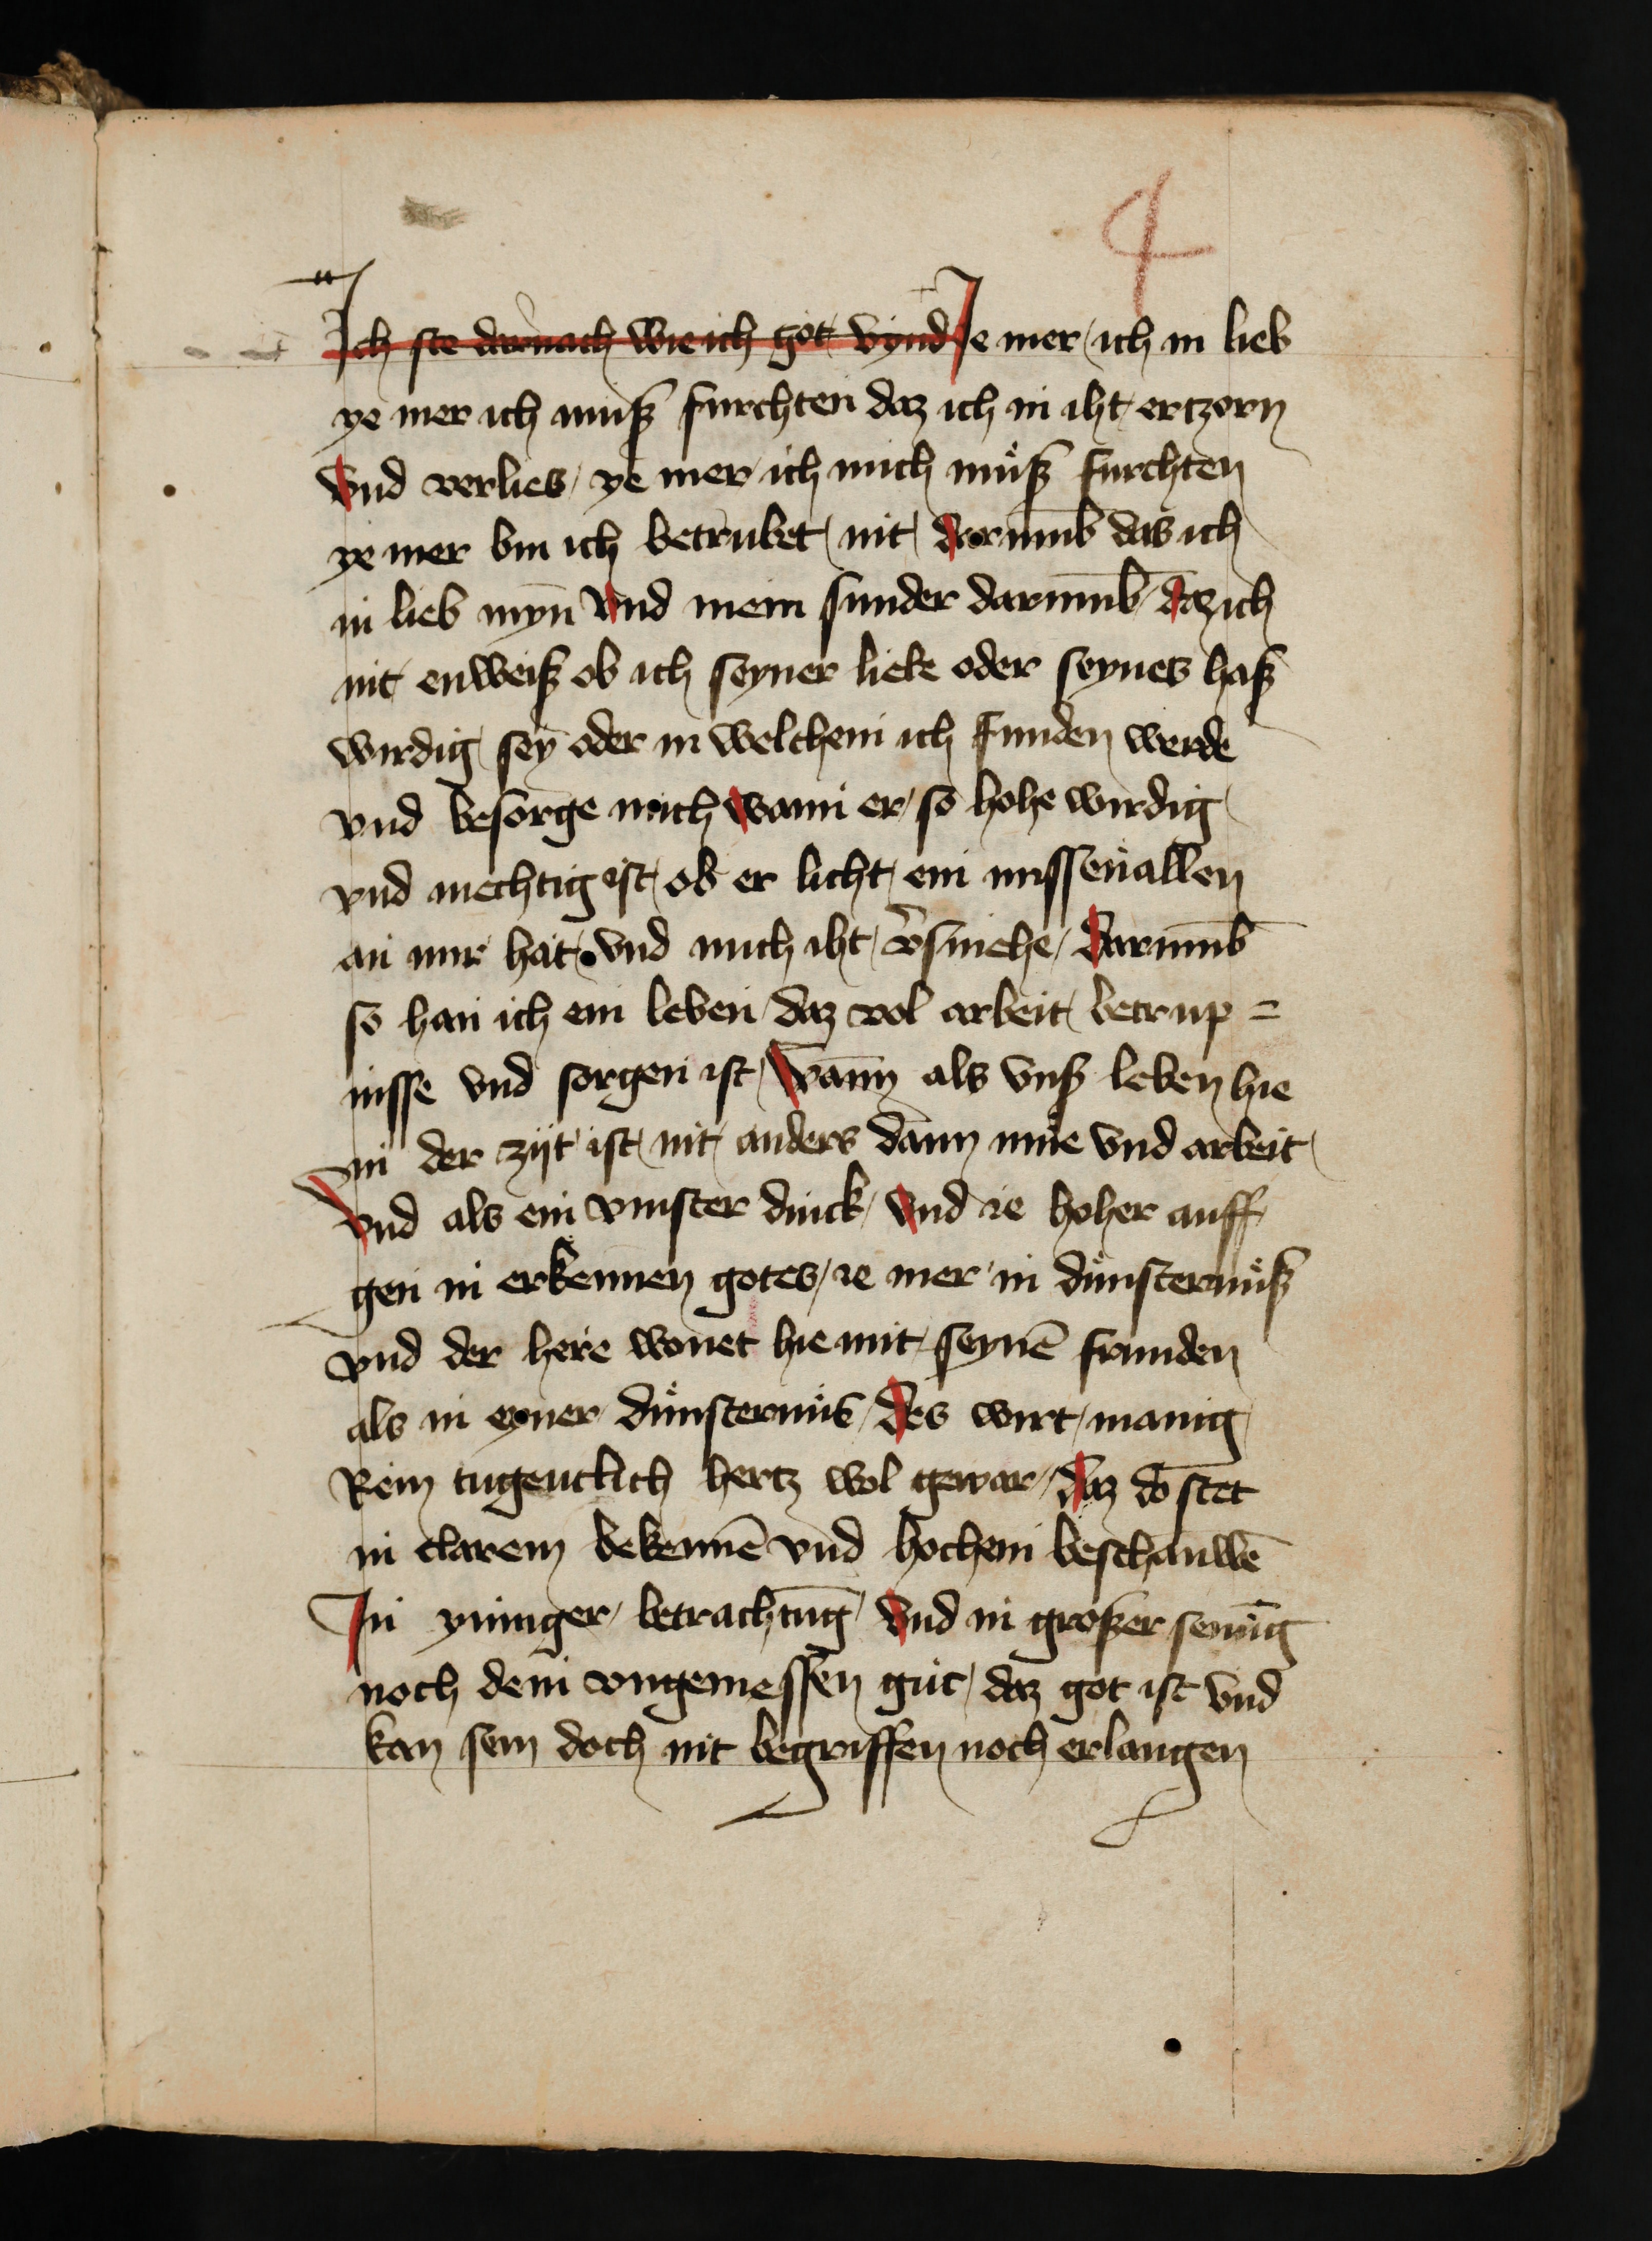 4
Ich ste darnach wie ich got vynd Je mer ich in lieb
ye mer ich muß furchten daz ich in iht ertzorn
vnd verlies ye mer ich mich mu̇ß furchten
ye mer bin ich betrubet nit dorūmb das ich
in lieb myn̄ vnd mein sunder darūmb daz ich
nit enweiß ob ich seyner liebe oder seynes haß
wirdig sey oder in welchem ich funden werde
vnd besorge mich wann er so hohe wirdig
vnd mechtig ist ob er licht ein missevallen
an mir hat vnd mich iht v̄smehe darūmb
so han ich ein leben daz vol arbeit betrup =
nisse vnd sorgen ist wānn als vnß leben hie
in der zijt ist nit anders dann mu̇e vnd arbeit
vnd als ein vinster dinck vnd ie hoher auff
gen in erkennen gotes ie mer in du̇nsternu̇ß
vnd der here wonet hie mit seynē frunden
als in eyner du̇nsternu̇s des wirt manig
Rein tugentlich hertz wol gewar daz do stet
in clarem bekennē vnd hochem beschauwē
In yniger betrachtūg vnd in großer senūg
noch dem vngemessen gut daz got ist vnd
kan sein doch nit begriffen noch erlangen